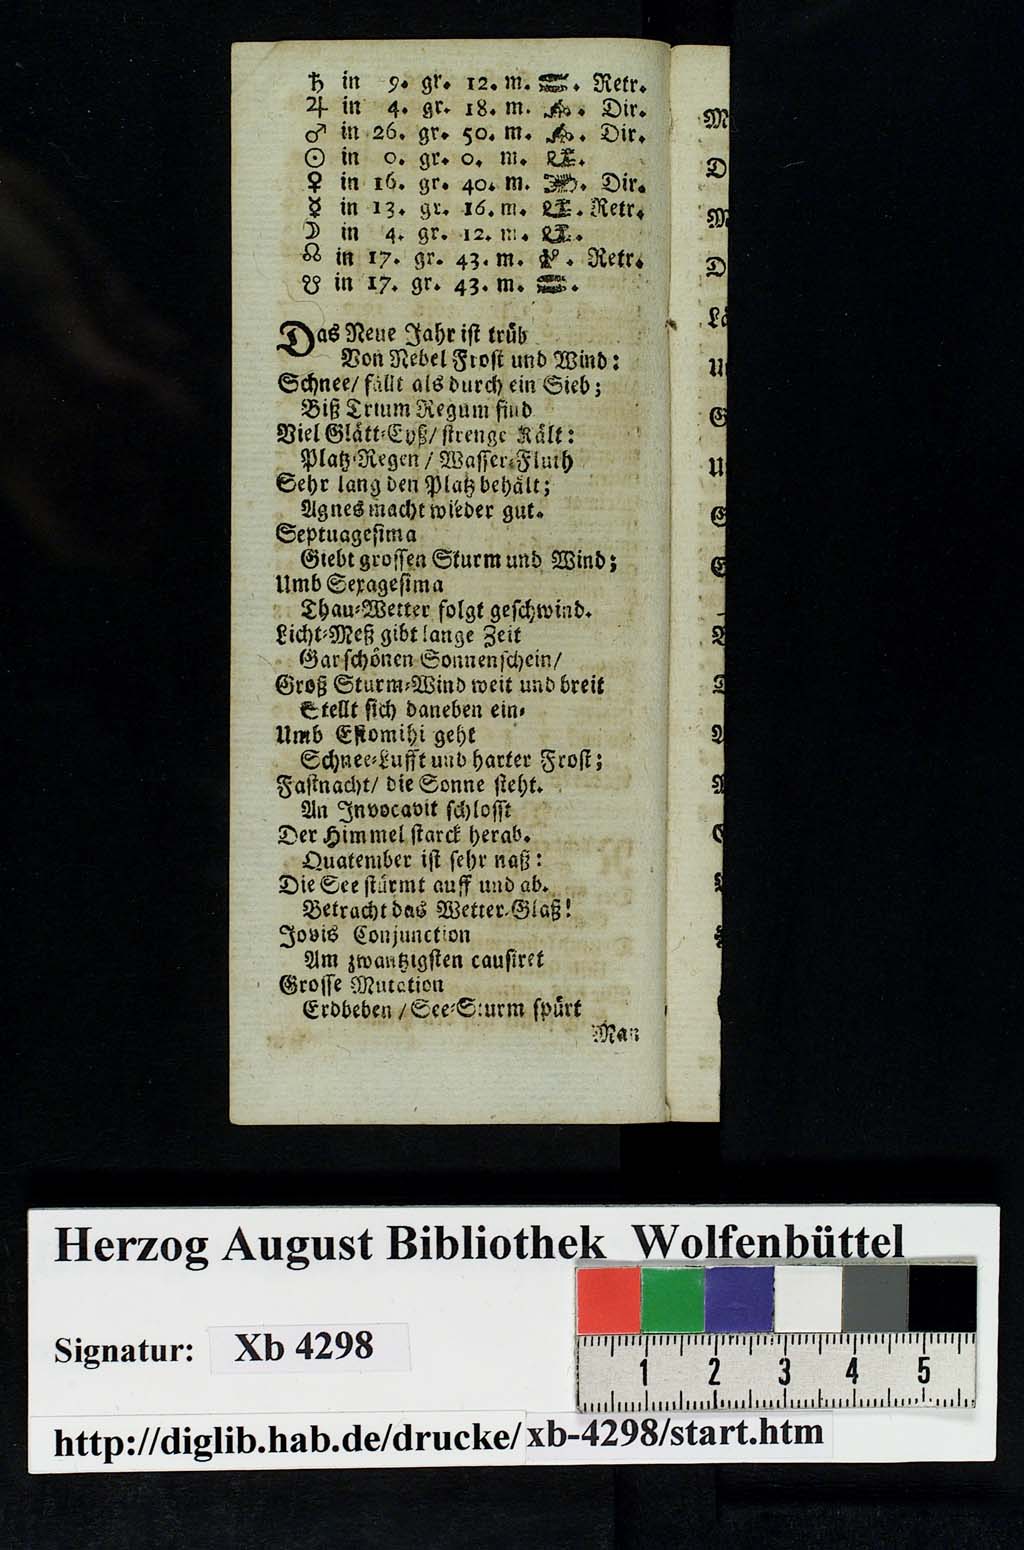 ♄ in 9. gr. 12. m. Retr.
♃ in 4. gr. 18. m. Dir.
♂ in 26. gr. 50. m. Dir.
☉ in 0. gr. 0. m.
♀ in 16. gr. 40. m. Dir.
☿ in 13. gr. 16. m. Retr.
☽ in 4. gr. 12. m.
☊ in 17. gr. 43. m. Retr.
☋ in 17. gr. 43. m.
Das Neue Jahr ist trüb
Von Nebel Frost und Wind:
Schnee/ fällt als durch ein Sieb;
Biß Trium Regum sind
Viel Glätt-Eyß/ strenge Kält:
Platz-Regen / Wasser-Fluth
Sehr lang den Platz behält;
Agnes macht wieder gut.
Septuagesima
Giebt grossen Sturm und Wind;
Umb Sexagesima
Thau-Wetter folgt geschwind.
Licht-Meß gibt lange Zeit
Gar schönen Sonnenschein/
Groß Sturm-Wind weit und breit
Stellt sich daneben ein.
Umb Estomihi geht
Schnee-Lufft und harter Frost;
Fastnacht/ die Sonne steht.
An Invocavit schlosst
Der Himmel starck herab.
Quatember ist sehr naß:
Die See stürmt auff und ab.
Betracht das Wetter-Glaß!
Jovis Conjunction
Am zwantzigsten causiret
Grosse Mutation
Erdbeben / See-Sturm spürt
Man
M
D
M
D
Lä
U
G
U
G
E
Herzog August Bibliothek Wolfenbüttel
Signatur: Xb 4298
1 2 3 4 5
http://diglib.hab.de/drucke/xb-4298/start.htm